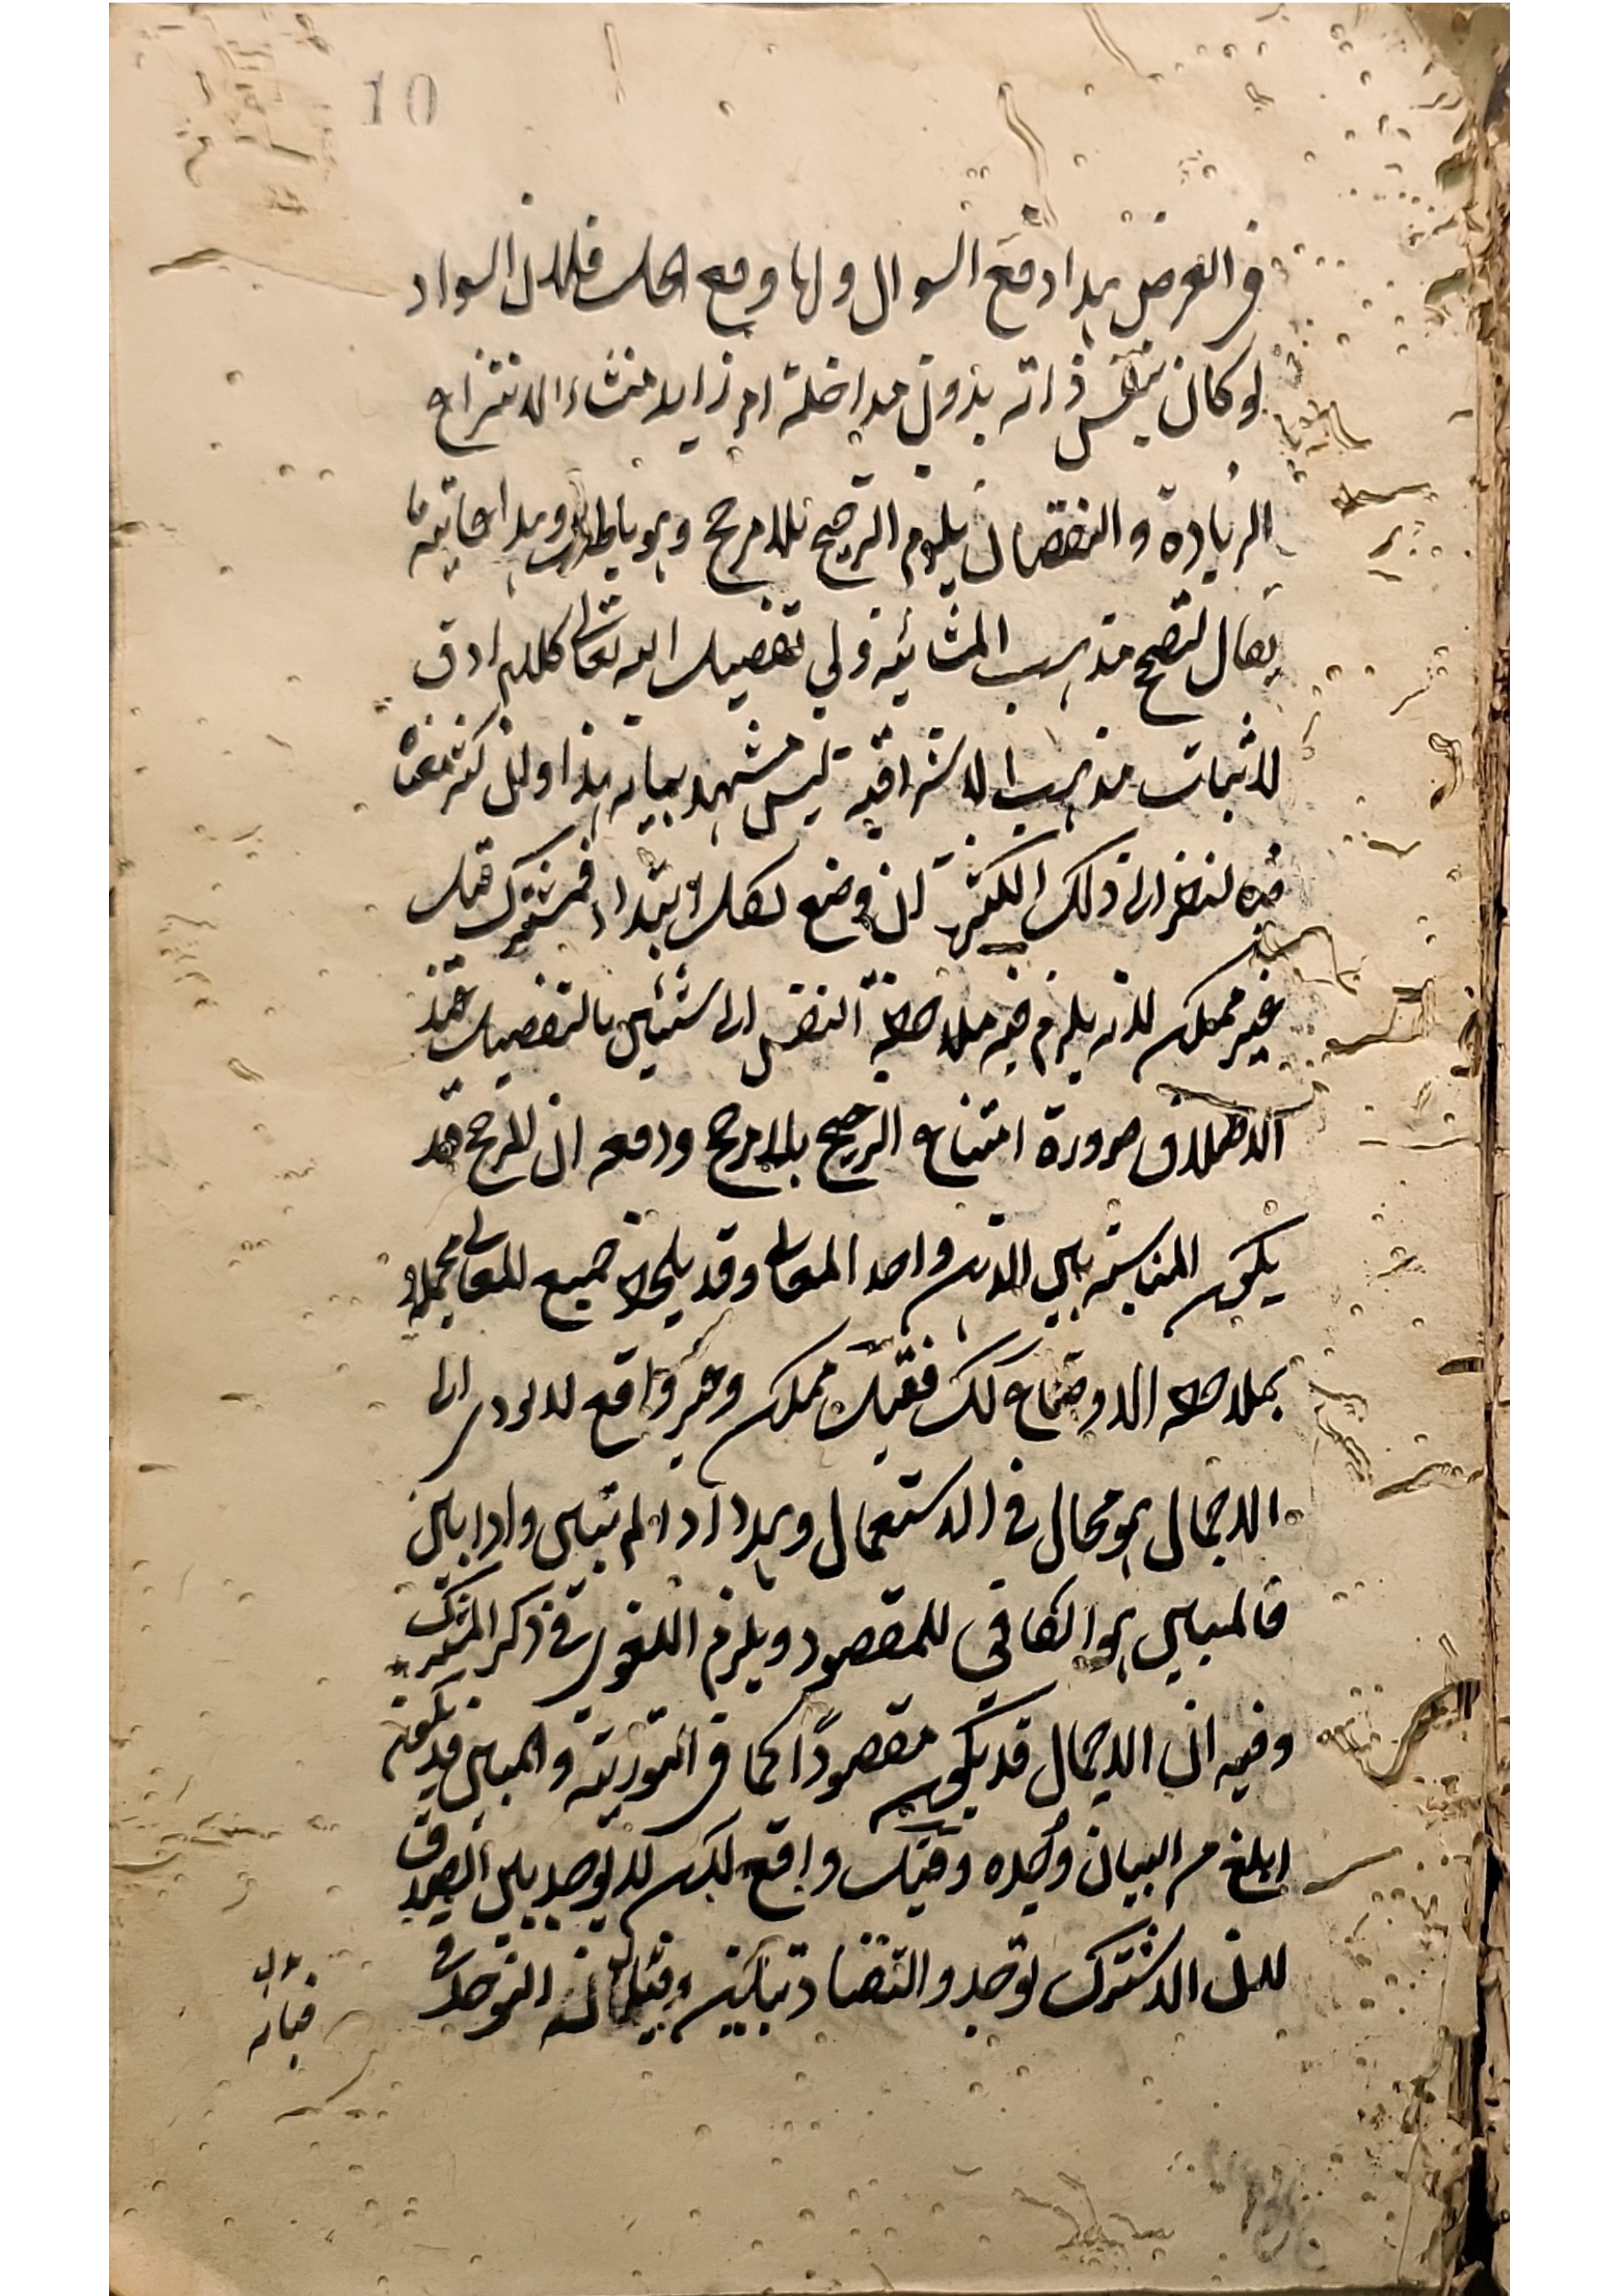 10
في العرض بهذا دفع السوال ولما وقع فلان السواد
لو كان بنفس ذاته بدون مداخلة امر زايد منشاء الانتزاع
الزيادة والنقصان يلزم الترجيح بلا مرجح وهو باطل وهذا غاية ما
يقال لتصحيح مذهب المشائية ولي تفصيل الله تعالى كلام ادق
لاثبات مذهب الاشراقية ليس مشهد بيانه هذا وان كثر معناه
فمه لنظر الى ذلك الكثير ان وضع لكل ابتداء فمشترك قيل
غير ممكن لانه يلزم فيه ملاحظة النفس الى شيئين بالتفصيل عند
الاطلاق ضرورة امتناع الترجيح بلا مرجح ودفعه ان المرجح قد
يكون المناسبة بين الذهن واحد المعاني وقد يلحظ جميع المعاني مجملا
بملاحظة الاوضاع كك فقيل ممكن وغير واقع لانه يودي الى
الاجمال هو محال في الاستعمال وهذا اذا لم تبين واذا بين
فالمبين هو الكافي للمقصود ويلزم اللغو في ذكر المشترك
وفيه ان الاجمال قد يكون مقصودًا كما في التورية والمبين قد يكون
ابلغ من البيان وحده وقيل واقع لكن لا يوجد بين الضدين
لان الاشتراك توحد والتضاد تباين وقيل ان التوحد في